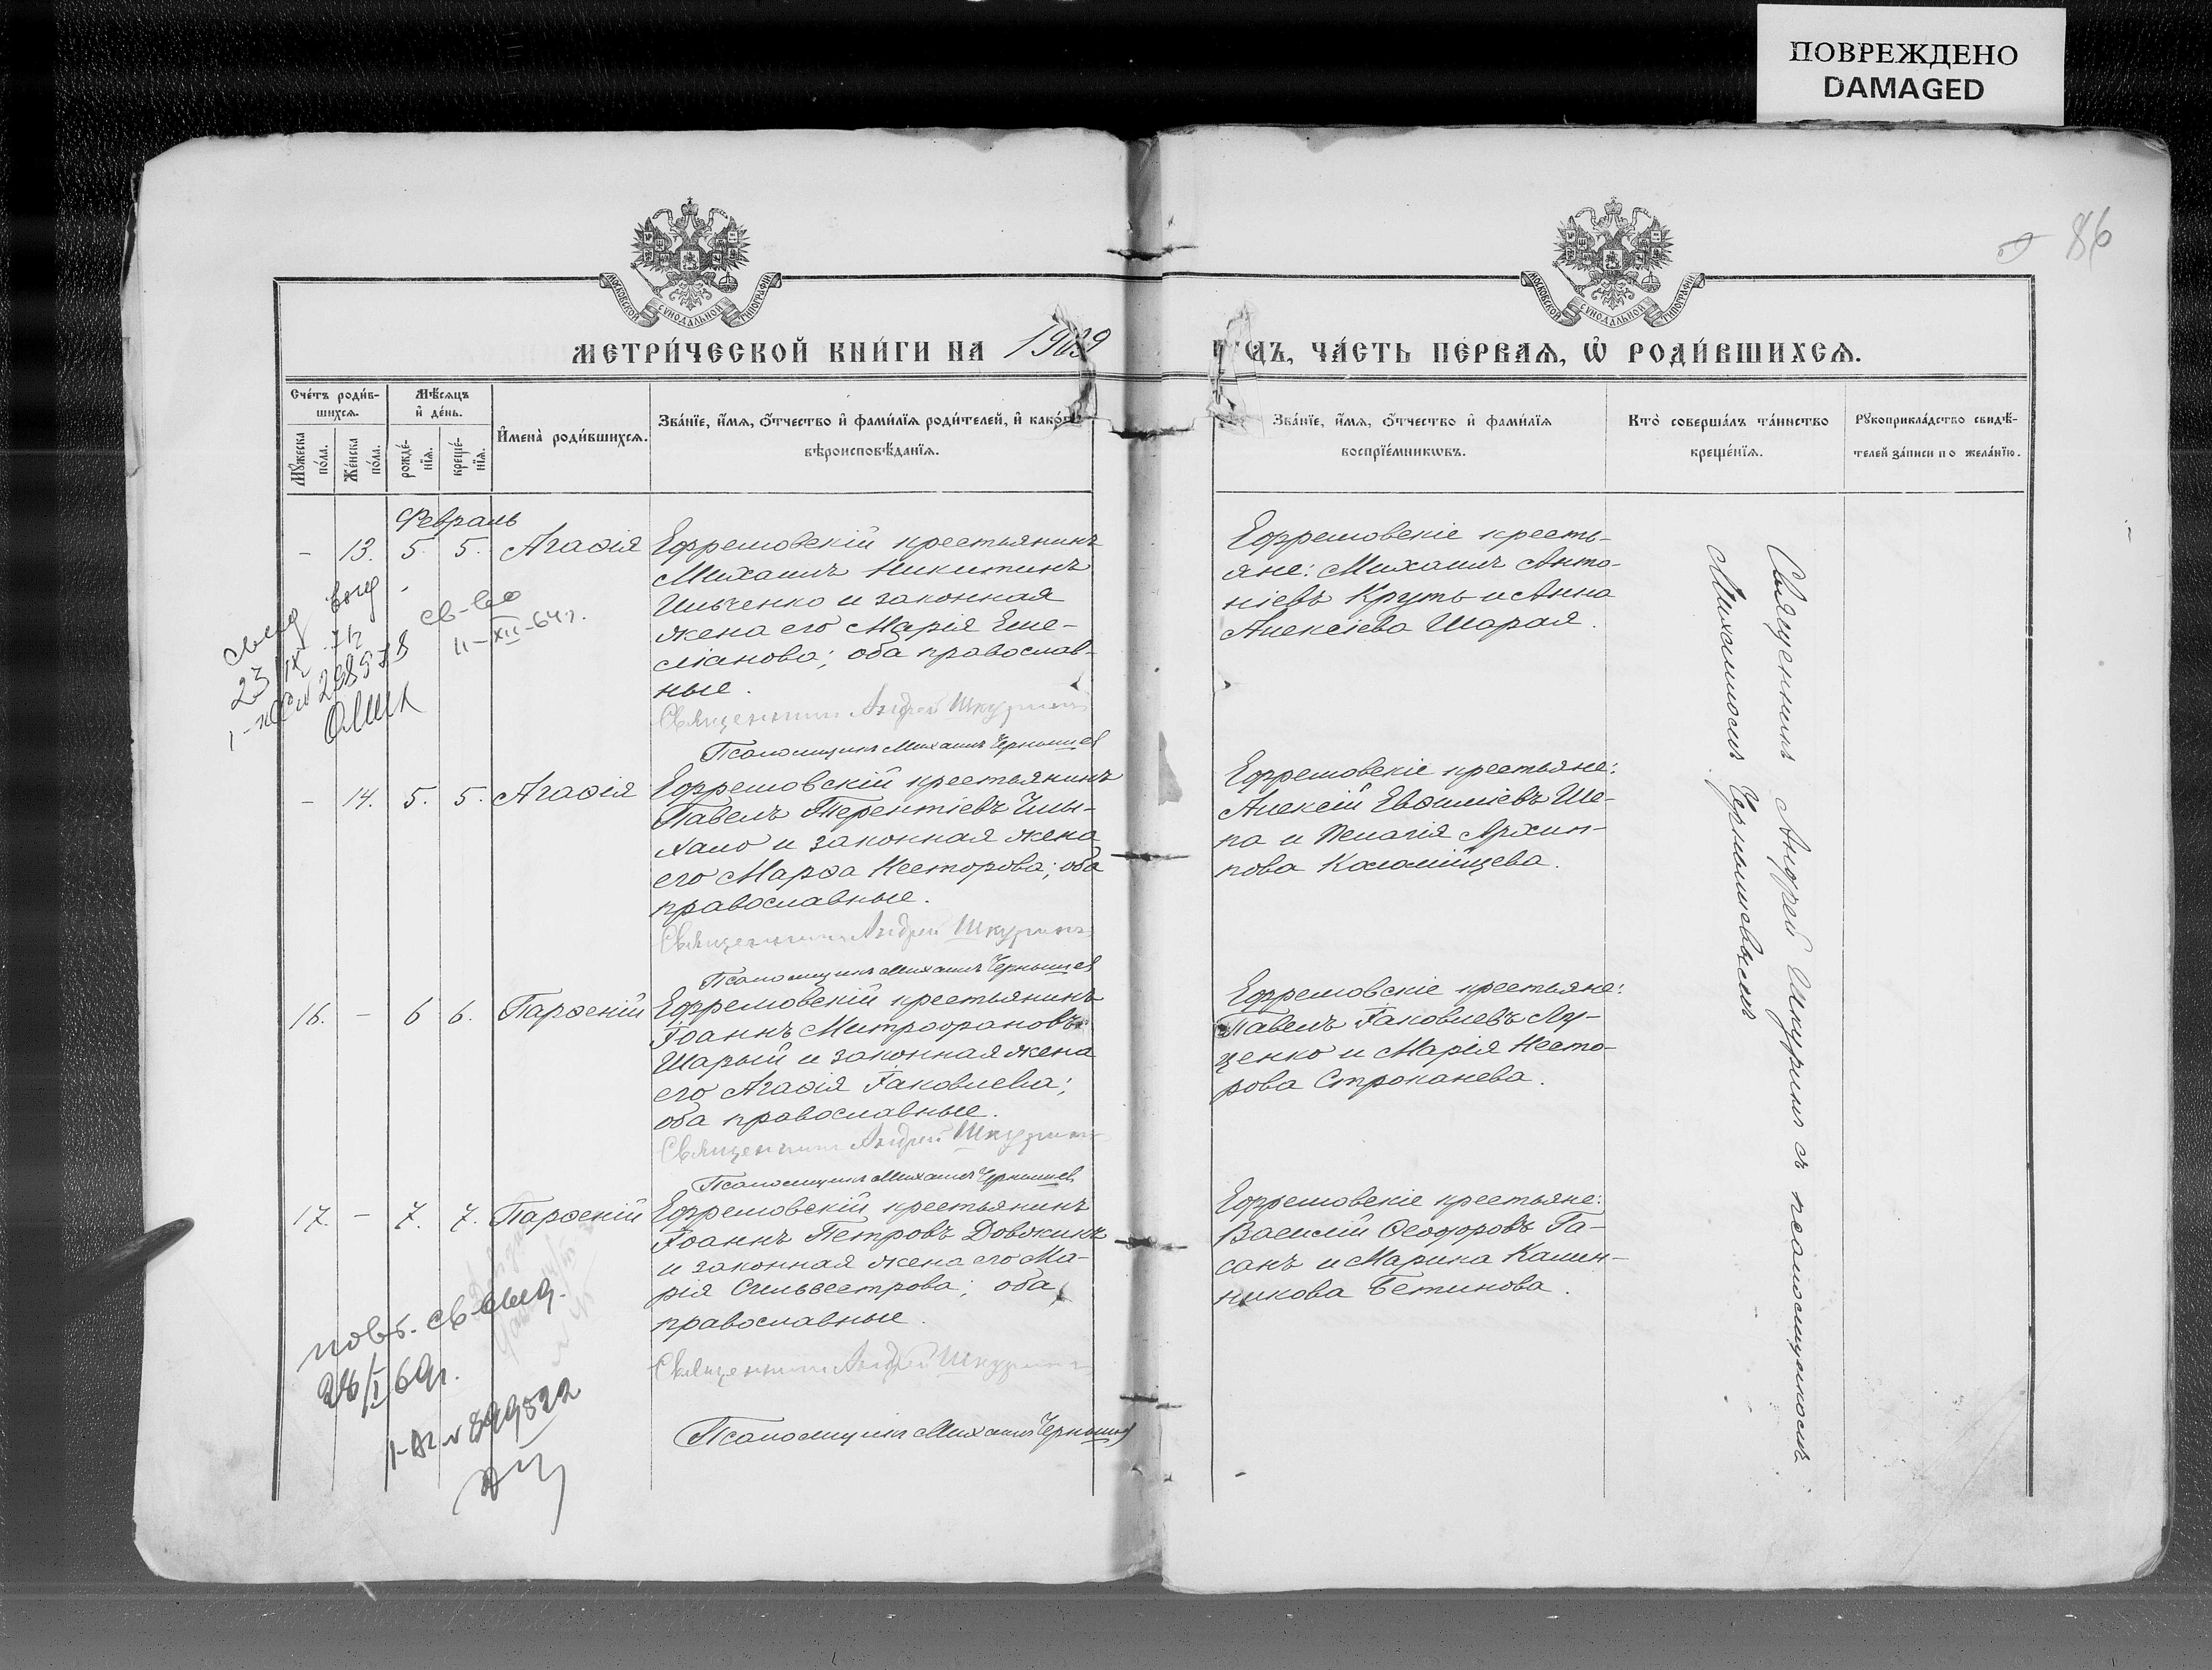 ПОВРЕЖДЕНО
DAMAGED
86
МОСКОВСКОЙ СѴНОДАЛЬНОЙ ТИПОГРАФІИ
МОСКОВСКОЙ СѴНОДАЛЬНОЙ ТИПОГРАФІИ
МЕТРИ́ЧЕСКОЙ КНИ́ГИ НА 1909
ГОДЪ, ЧА́СТЬ ПЕ́РВАѦ, Ѡ҆ РОДИ́ВШИХСѦ.
Сче́тъ роди́в-
шихсѧ.
Мꙋ́жеска по́ла.
Же́нска по́ла.
Мѣ́сѧцъ
и҆ де́нь.
рожде́-
нїѧ.
креще́-
нїѧ.
И҆мена̀ роди́вшихсѧ.
Зва́нїе, и҆́мѧ, ѻ҆́тчество и҆ фами́лїѧ роди́телей, и҆ како́гѡ
вѣроисповѣ́данїѧ.
Зва́нїе, и҆́мѧ, ѻ҆́тчество и҆ фами́лїѧ
воспрїе́мникѡвъ.
Кто̀ соверша́лъ та́инство
креще́нїѧ.
Рꙋкоприкла́дство свидѣ́-
телей за́писи по жела́нїю.
Февраль
- 13. 5. 5. Агаѳія
Ефремовскій крестьянинъ
Михаилъ Никитинъ
Ильченко и законная
жена его Марія Еме-
ліанова; оба православ-
ные.
Священникъ Андрей Шкуринъ
Псаломщикъ Михаилъ Чернышев
Ефремовскіе кресть-
яне: Михаилъ Анто-
ніевъ Круть и Анна
Алексіева Шарая.
св-во
11-XII-64г.
23/IX 71
- 14. 5. 5. Агаѳія
Ефремовскій крестьянинъ
Павелъ Терентіевъ Чмы-
хало и законная жена
его Марѳа Несторова; оба
православные.
Священникъ Андрей Шкуринъ
Псаломщикъ Михаилъ Чернышев
Ефремовскіе крестьяне:
Алексій Евѳиміевъ Ше-
па и Пелагія Архип-
пова Коломійцева.
16. - 6 6. Парѳеній
Ефремовскій крестьянинъ
Іоаннъ Митрофановъ
Шарый и законная жена
его Агаѳія Іаковлева;
оба православные.
Священникъ Андрей Шкуринъ
Псаломщикъ Михаилъ Чернышев
Ефремовскіе крестьяне:
Павелъ Іаковлевъ Лу-
ценко и Марія Несто-
рова Строканева.
17. - 7. 7. Парѳеній
Ефремовскій крестьянинъ
Іоаннъ Петровъ Довжикъ
и законная жена его Ма-
рія Сильвестрова; оба
православные.
Священникъ Андрей Шкуринъ
Псаломщикъ Михаилъ Чернышев
Ефремовскіе крестьяне:
Василій Ѳеодоровъ Га-
санъ и Марина Калин-
никова Бетинова.
повт. св-
28/I 69г.
Священникъ Андрей Шкуринъ съ псаломщикомъ
Михаиломъ Чернышевымъ